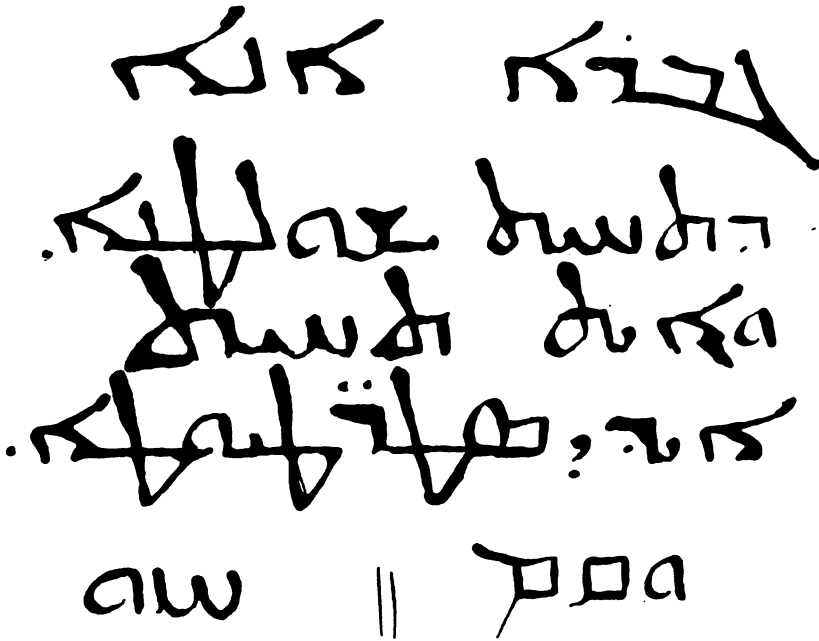 ܓܒܪܐ ܐܢܐ
ܕܬܚܝܬ ܫܘܠܛܢܐ.
ܘܐܝܬ ܬܚܝܬ
ܐܝܕܝ ܣܛܪ̈ܛܝܘܛܐ.
ܘܩܡ